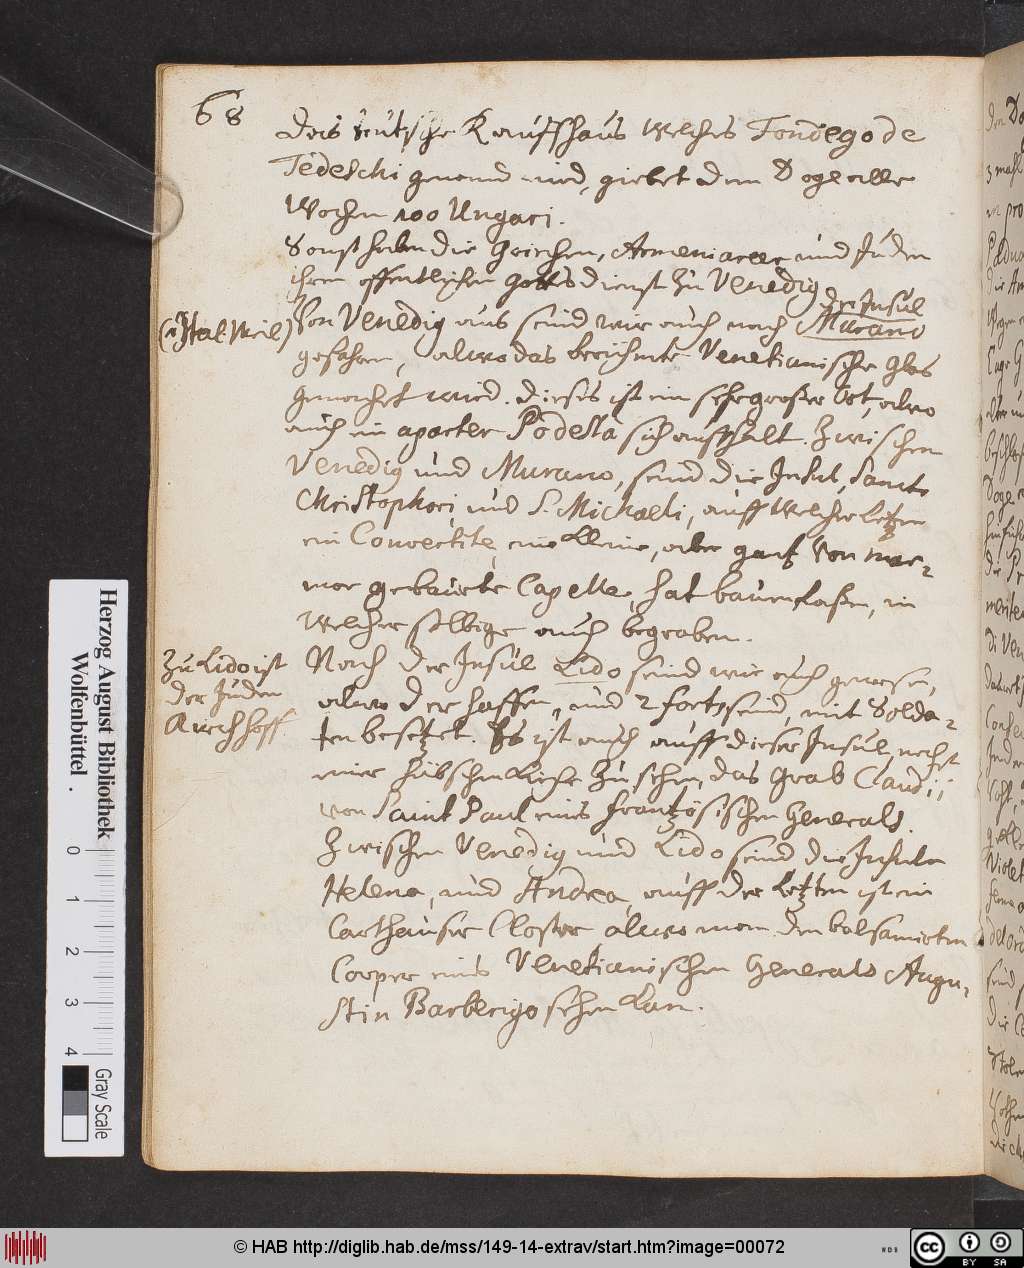 68
Das teutsche Kauffhaus welches Fondego de
Tedeschi genand wird, giebet dem Doge alle
Wochen 100 Ungari.
Sonst haben die Griechen, Armeniacer und Juden
ihren offentlichen Gottsdienst zu Venedig
(1 Ital Meil) Von Venedig aus seind wir auch nach der Insul Murano
gefahren, alwo das berühmte Venetianische Glas
gemachet wird. Dieses ist ein sehr großer Ort, alwo
auch ein aparter Podesta sich auffhält. Zwischen
Venedig und Murano, seind die Insul, Sancti
Christophori und S. Michaeli, auff welcher letzen
ein Convertite, eine kleine, aber gantz von mar-
mor gebauete Capelle, hat bauen laßen, in
welcher selbige auch begraben.
Zu Lido ist
der Juden
Kirchhoff.
Nach der Insul Lido seind wir auch gewesen,
alwo der Haffen, und 2 forts seind, mit Solda-
ten besetzet. Es ist auch auff dieser Insul, nechst
einer hübschen Kirche zu sehen, das Grab Claudii
von Saint Paul eines Frantzösischen Generals.
Zwischen Venedig und Lido seind die Insuln
Helena, und Andrea, auff der letzten ist ein
Carthäuser Closter alwo man den balsamirten
Corper eines Venetianischen Generals Augu-
stin Barberigo sehen kan.
Herzog August Bibliothek
Wolfenbüttel
0 1 2 3 4
Gray Scale
© HAB http://diglib.hab.de/mss/149-14-extrav/start.htm?image=00072
cc BY SA